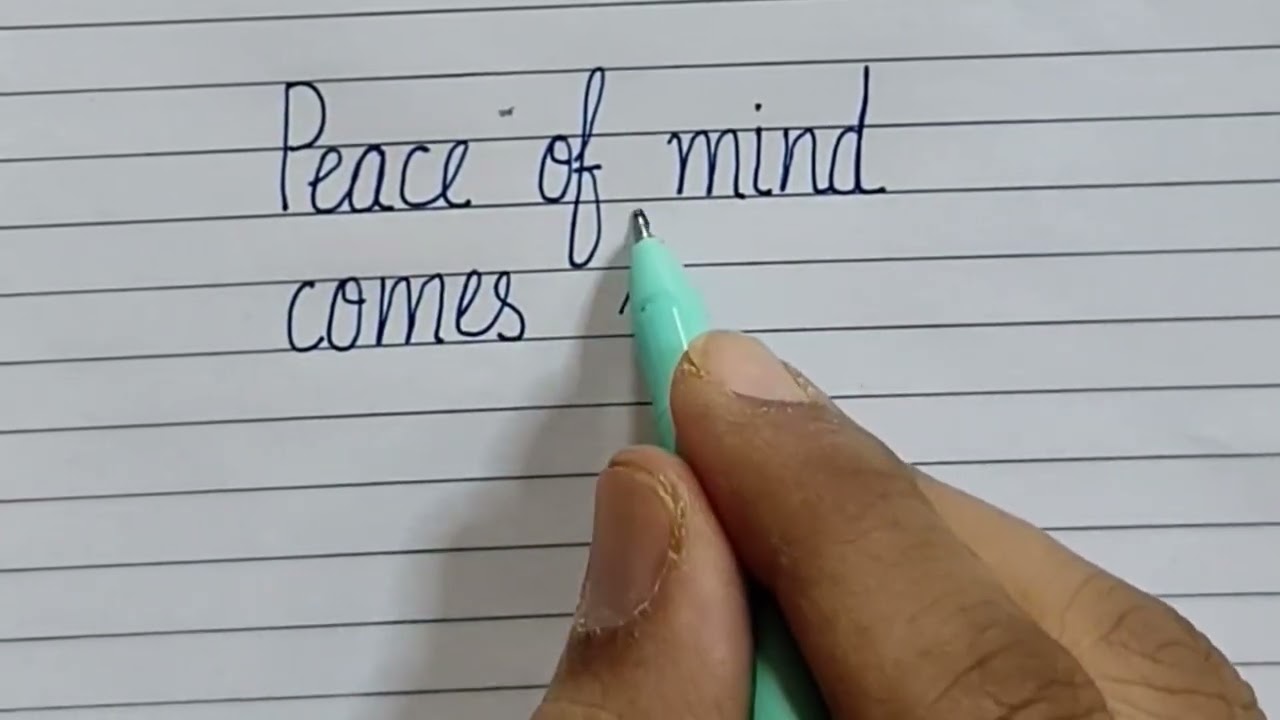 Peace of mind
comes